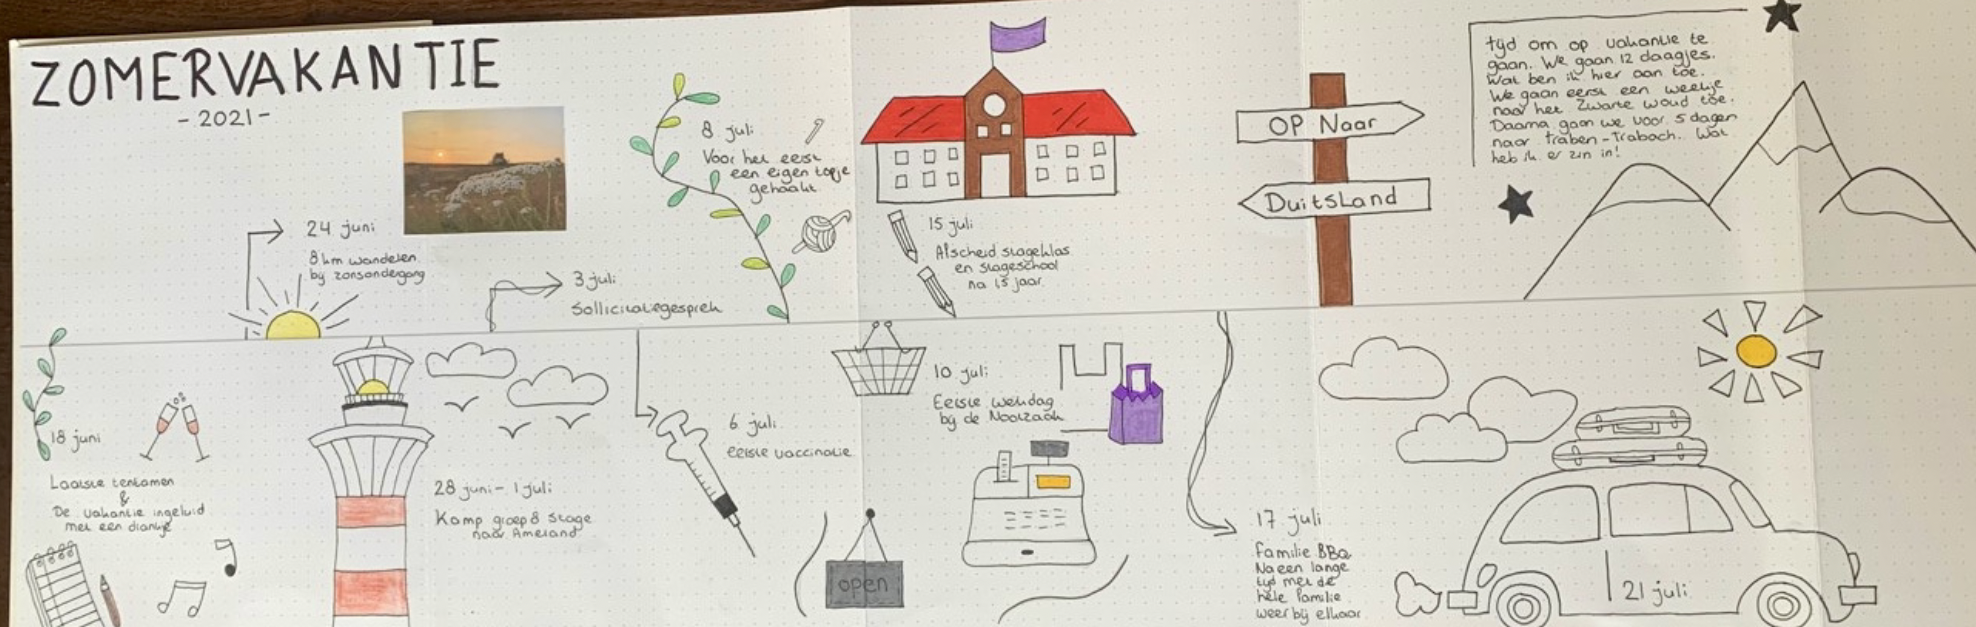 ZOMERVAKANTIE
- 2021 -
24 juni
8 km wandelen
bij zonsondergang
3 juli
Sollicitatiegesprek
8 juli
Voor het eerst
een eigen topje
gehaakt
15 juli
Afscheid stageklas
en stageschool
na 1,5 jaar
OP Naar
DuitsLand
tijd om op vakantie te
gaan. We gaan 12 daagjes.
Wat ben ik hier aan toe.
We gaan eerst een weekje
naar het Zwarte woud toe.
Daarna gaan we voor 5 dagen
naar Traben-Trabach. Wat
heb ik er zin in!
18 juni
Laatste tentamen
&
De vakantie ingeluid
met een drankje
28 juni - 1 juli
Kamp groep 8 stage
naar Ameland
6 juli
eerste vaccinatie
open
10 juli
Eerste werkdag
bij de
17 juli
familie BBQ
Na een lange
tijd met de
hele familie
weer bij elkaar
21 juli